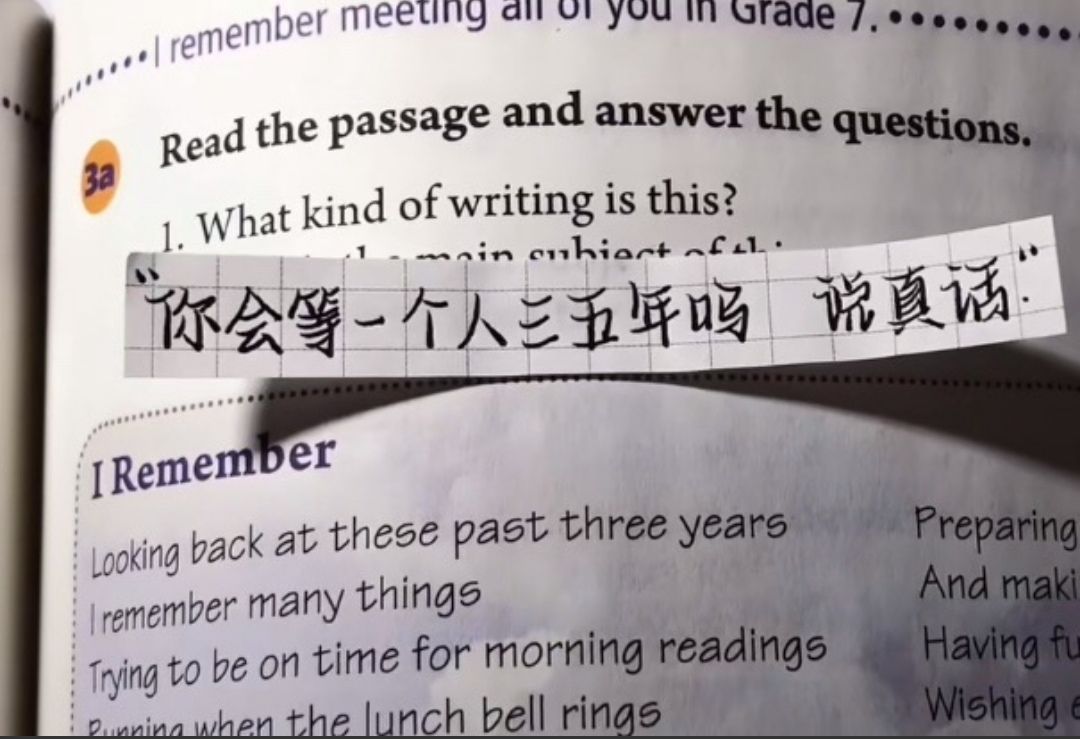 I remember meeting all of you in Grade 7.
3a
Read the passage and answer the questions.
1. What kind of writing is this?
main subject of
“你会等一个人三五年吗 说真话.”
I Remember
Looking back at these past three years
I remember many things
Trying to be on time for morning readings
Running when the lunch bell rings
Preparing
And maki
Having fu
Wishing e